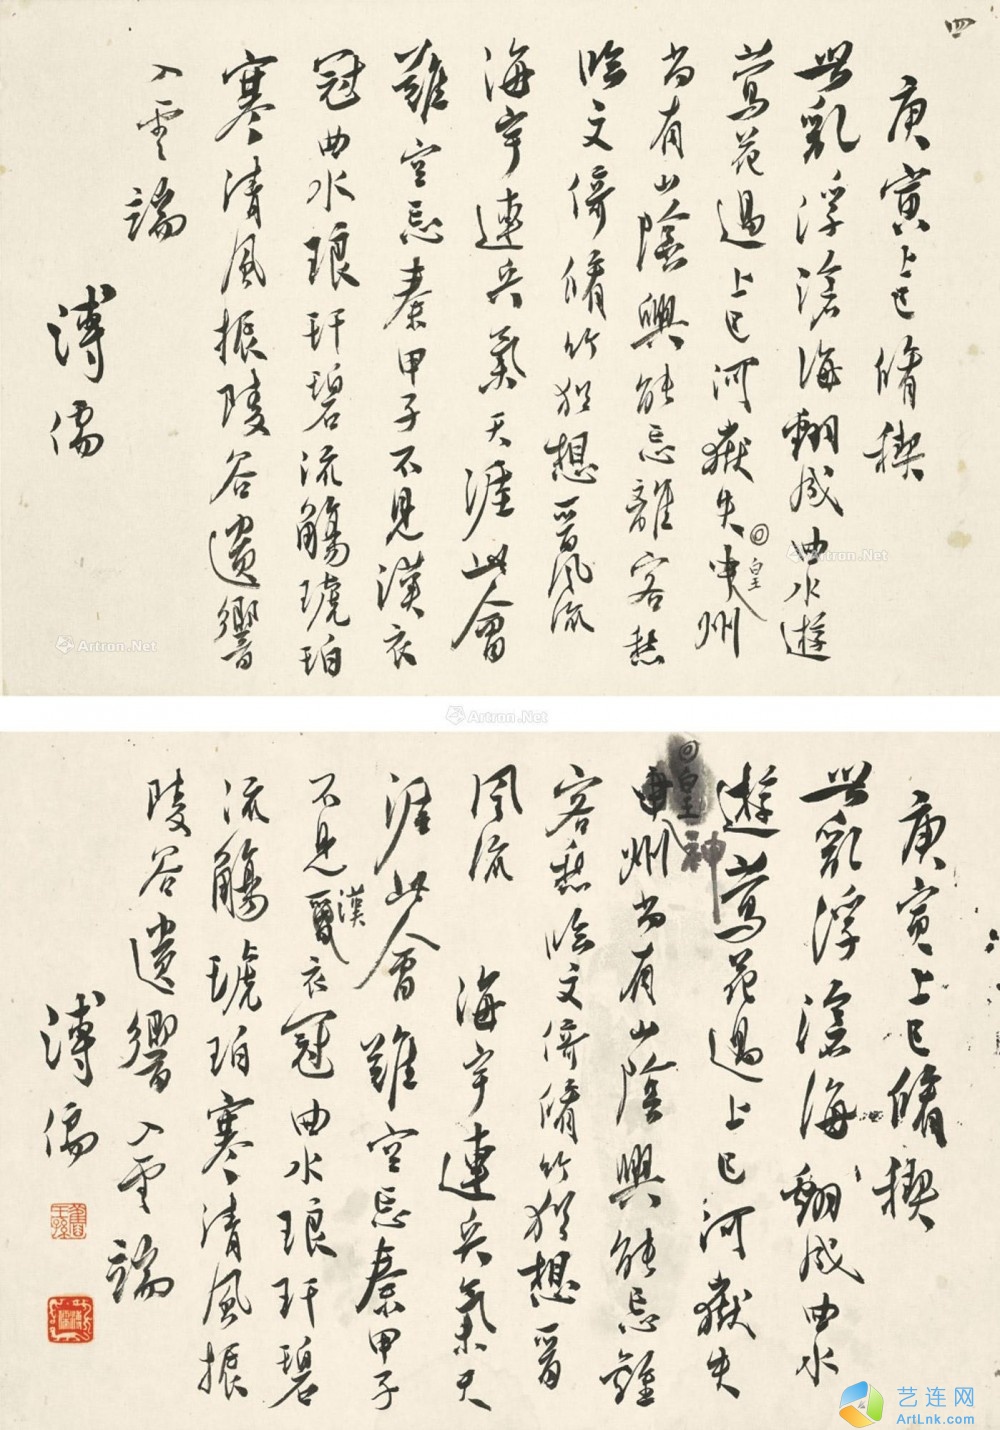 四
庚寅上巳脩禊
世亂浮滄海翻成曲水遊
鶯花過上巳河嶽失申州
皇
尚有山陰興能忘離客愁
臨文倚脩竹猶想晉風流
海宇連兵氣天涯此會
難空忘秦甲子不見漢衣
冠曲水琅玕碧流觴琥珀
寒清風振陵谷遺響
入雲端
溥儒
Artron.Net
Artron.Net
Artron.Net
庚寅上巳脩禊
世亂浮滄海翻成曲水
遊鶯花過上巳河嶽失
州尚有山陰興能忘離
皇
神
客愁臨文倚脩竹猶想晉
風流 海宇連兵氣天
涯此會難空忘秦甲子
不見衣冠曲水琅玕碧
漢
流觴琥珀寒清風振
陵谷遺響入雲端
溥儒
舊王孫
艺连网
ArtLnk.com